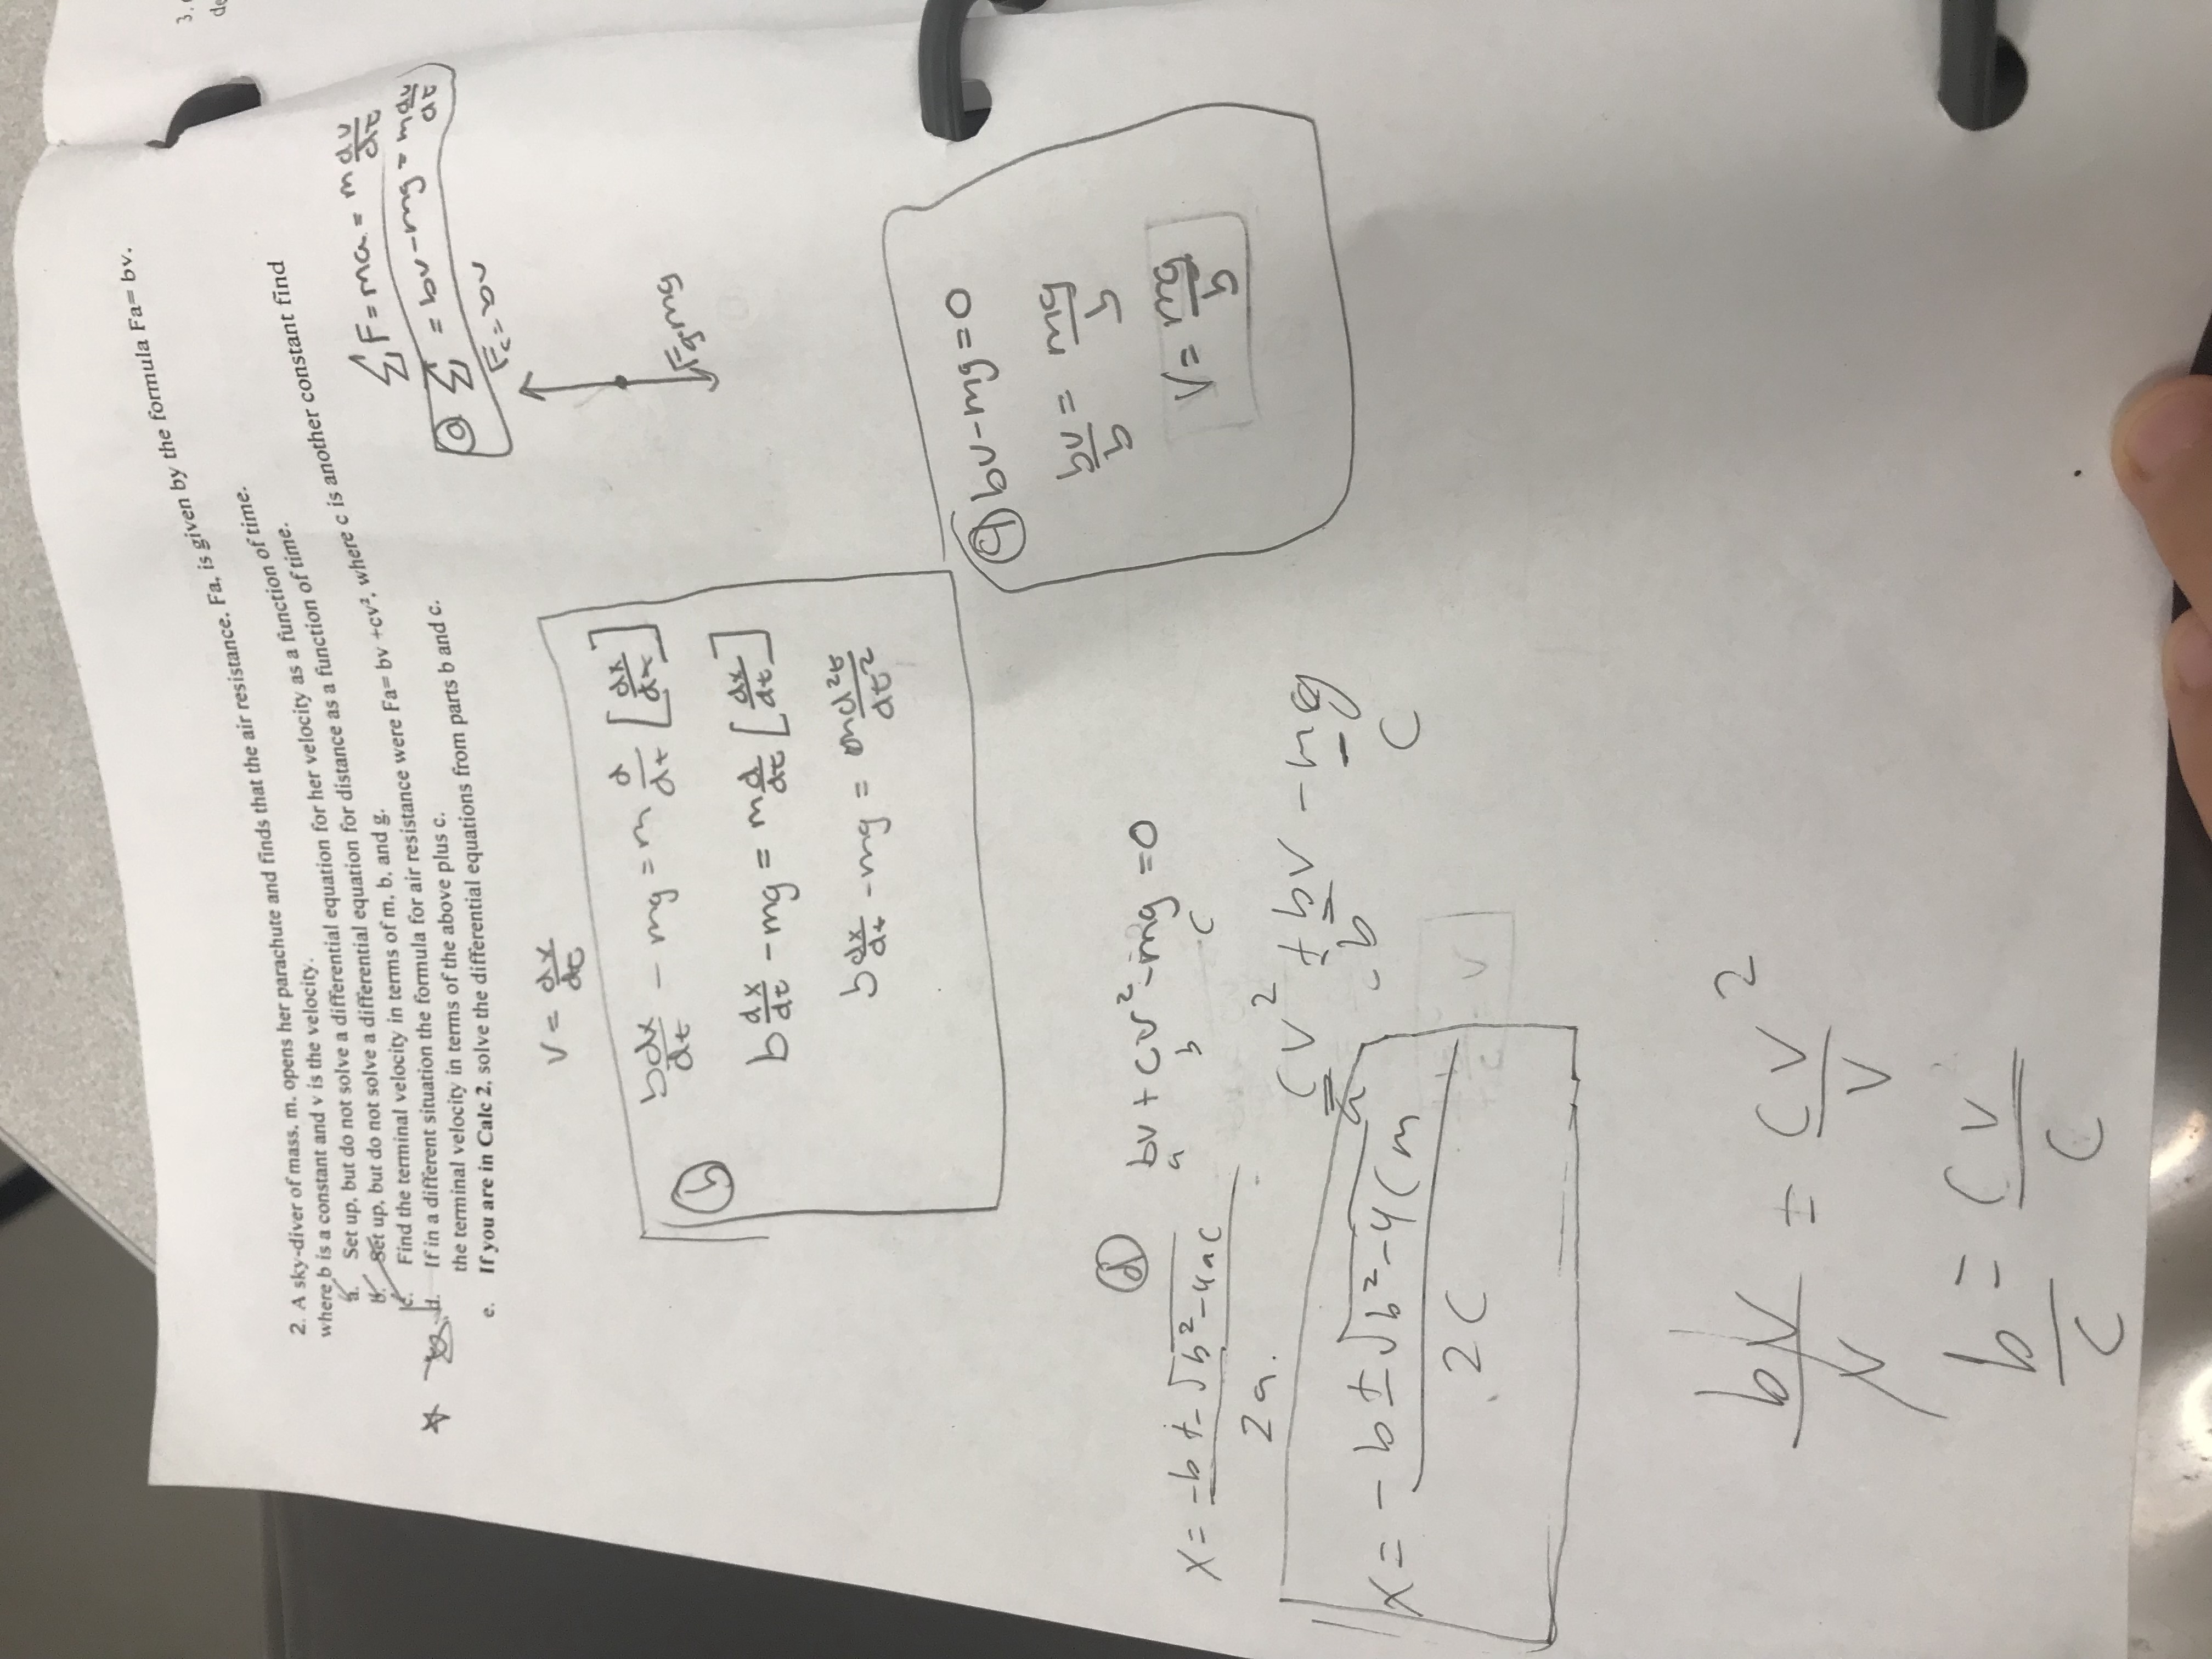 2. A sky-diver of mass, m, opens her parachute and finds that the air resistance, Fa, is given by the formula Fa= bv,
where b is a constant and v is the velocity.
a. Set up, but do not solve a differential equation for her velocity as a function of time.
b. Set up, but do not solve a differential equation for distance as a function of time.
c. Find the terminal velocity in terms of m, b, and g.
d. If in a different situation the formula for air resistance were Fa= bv +cv², where c is another constant find
the terminal velocity in terms of the above plus c.
e. If you are in Calc 2, solve the differential equations from parts b and c.
3.
de
ΣF = ma = m dv/dt
ⓐ Σ = bv - mg = m dv/dt
F = bv
Fg mg
v = dx/dt
ⓑ
b dx/dt - mg = m d/dt [dx/dt]
b dx/dt - mg = m d/dt [dx/dt]
b dx/dt - mg = m d²t/dt²
bv - mg = 0
bv/b = mg/b
V = mg/b
ⓓ bv + cv² - mg = 0
a b c
x = -b ± √b² - 4ac / 2a.
cv² + bv - mg
a b c
x = -b ± √b² - 4cm / 2c
v
bv/v = cv²/v
b/c = cv/c